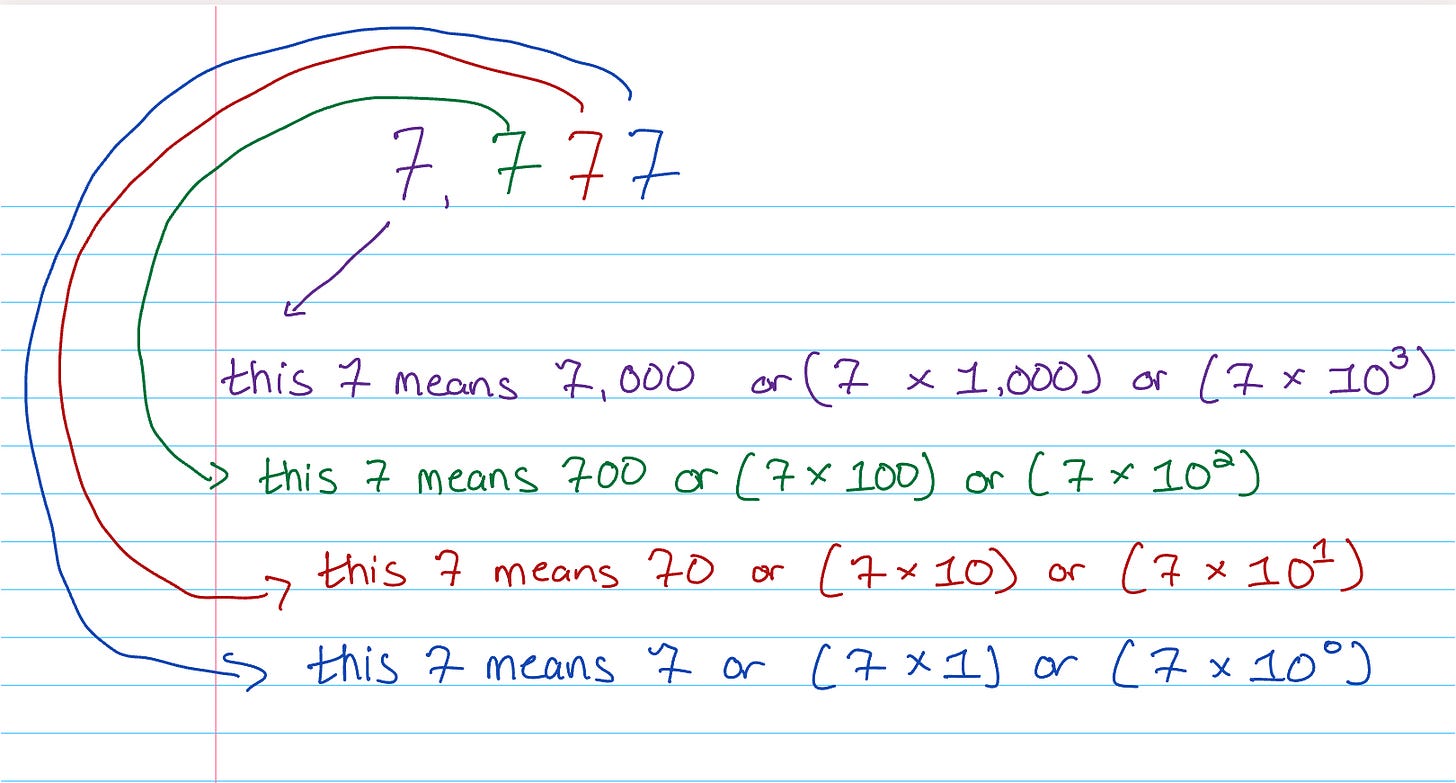 7,777
this 7 means 7,000 or (7 x 1,000) or (7 x 10³)
this 7 means 700 or (7 x 100) or (7 x 10²)
this 7 means 70 or (7 x 10) or (7 x 10¹)
this 7 means 7 or (7 x 1) or (7 x 10⁰)